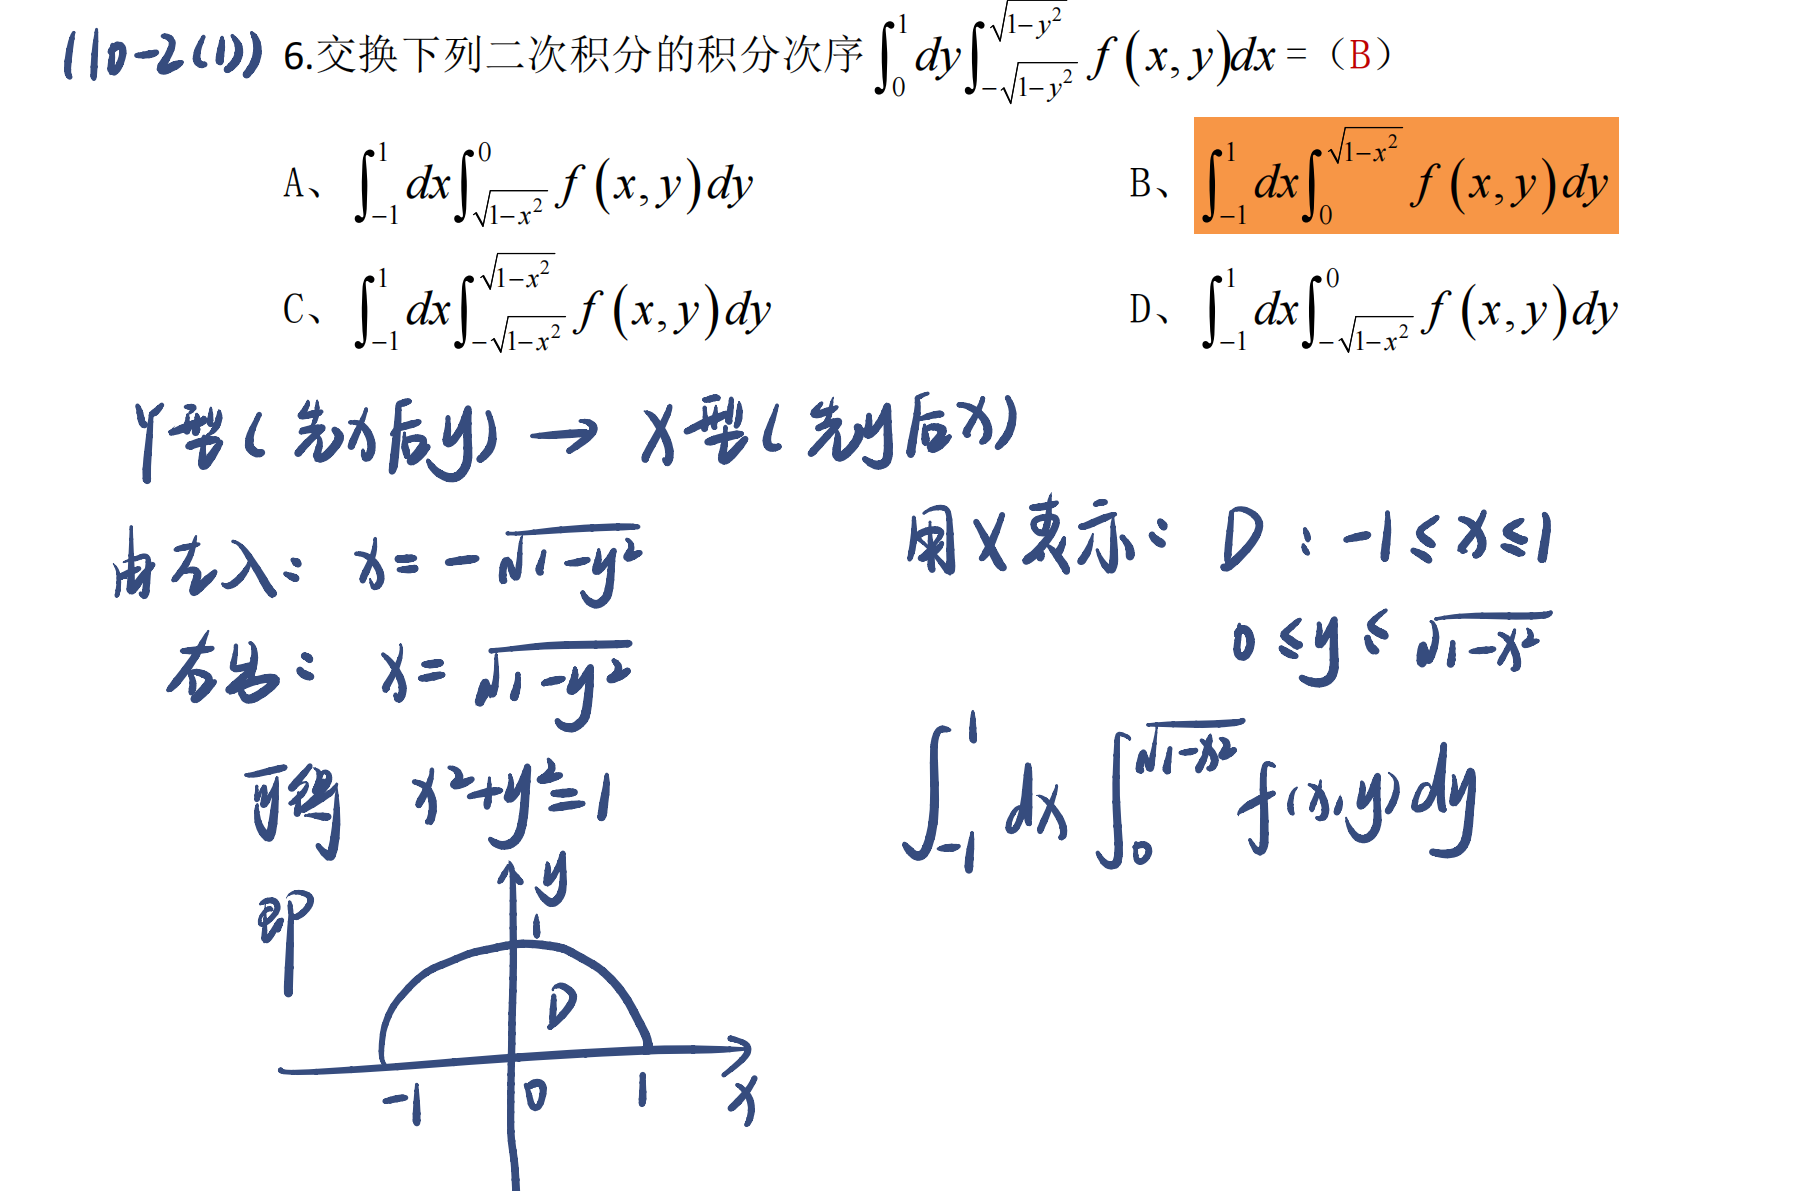 (110-2(1)) 6.交换下列二次积分的积分次序 ∫_0^1 dy ∫_{-√(1-y²)}^{√(1-y²)} f(x,y)dx = (B)
A、 ∫_{-1}^1 dx ∫_{√(1-x²)}^0 f(x,y)dy B、 ∫_{-1}^1 dx ∫_0^{√(1-x²)} f(x,y)dy
C、 ∫_{-1}^1 dx ∫_{-√(1-x²)}^{√(1-x²)} f(x,y)dy D、 ∫_{-1}^1 dx ∫_{-√(1-x²)}^0 f(x,y)dy
Y型(先x后y) → X型(先y后x)
由左入: x = -√(1-y²)
右出: x = √(1-y²)
可得 x²+y²=1
即
y
1
D
-1 0 1 x
用X表示: D: -1≤x≤1
0≤y≤√(1-x²)
∫_{-1}^1 dx ∫_0^{√(1-x²)} f(x,y)dy